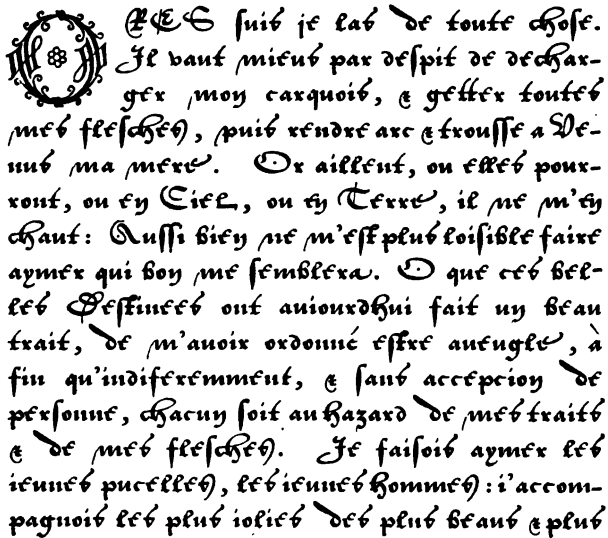 ORES suis je las de toute chose.
Il vaut mieus par despit de dechar-
ger mon carquois, & getter toutes
mes flesches, puis rendre arc & trousse a Ve-
nus ma mere. Or aillent, ou elles pour-
ront, ou en Ciel, ou en Terre, il ne m'en
chaut: Aussi bien ne m'est plus loisible faire
aymer qui bon me semblera. O que ces bel-
les Destinees ont auiourdhui fait un beau
trait, de m'auoir ordonné estre aueugle, à
fin qu'indiferemment, & sans accepcion de
personne, chacun soit au hazard de mes traits
& de mes flesches. Je faisois aymer les
ieunes pucelles, les ieunes hommes: i'accom-
pagnois les plus iolies des plus beaus & plus